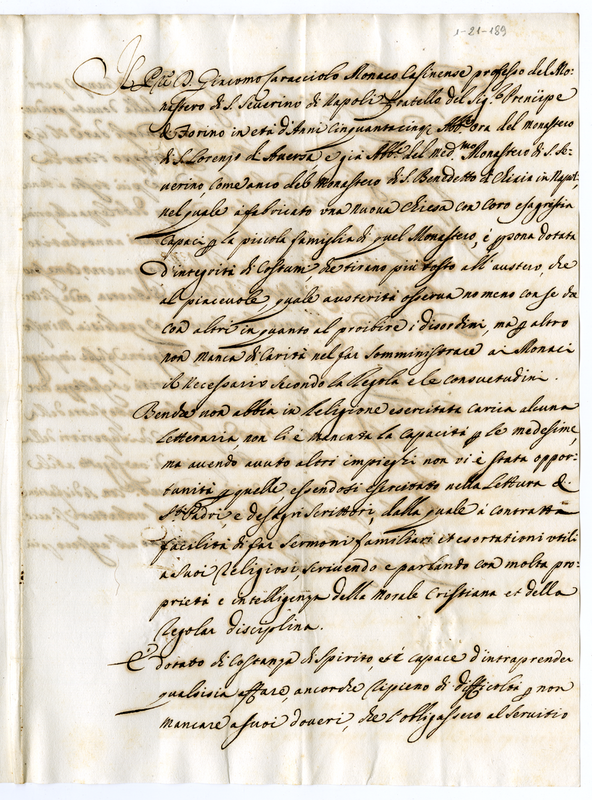 1-21-189
Il P. D. Giacomo Caracciolo Monaco Casinense professo del Mo-
nastero di S. Severino di Napoli fratello del Sig.r Prencipe
di Torino in età d'Anni Cinquanta cinq. Abb.e ora del Monastero
di S. Lorenzo di Aversa, e già Abb.e del med.mo Monastero di S. Se-
verino, Come anco del Monastero di S. Benedetto di Chiaia in Napoli,
nel quale à fabricato una nuova Chiesa con Coro e sagristia
Capaci p la piccola famiglia di quel Monastero, é psona dotata
d'integrità di Costumi, che tirano piu tosto all'austero, che
al piacevole, quale austerità osserva no meno con se che
con altri in quanto al proibire i disordini, ma p altro
non manca di Carità nel far somministrare a i Monaci
il necessario secondo la Regola e le consuetudini.
Benche non abbia in Religione esercitata carica alcuna
letteraria non li è mancata la capacità p le medesime,
ma avendo avuto altri impieghi non vi è stata oppor-
tunità p quelle, essendosi esercitato nella lettura de
S.ti Padri, e de sagri scrittori, dalla quale à contratta
facilità di far sermoni familiari et esortationi utili
a suoi Religiosi, scrivendo e parlando con molta pro-
prietà e intelligenza della Morale Cristiana et della
Regolar disciplina.
E dotato di Costanza di Spirito, et é capace d'intraprender
qualsisia affare, ancorche ripieno di difficoltà p non
mancare a suoi doveri, che l'obligassero al servitio